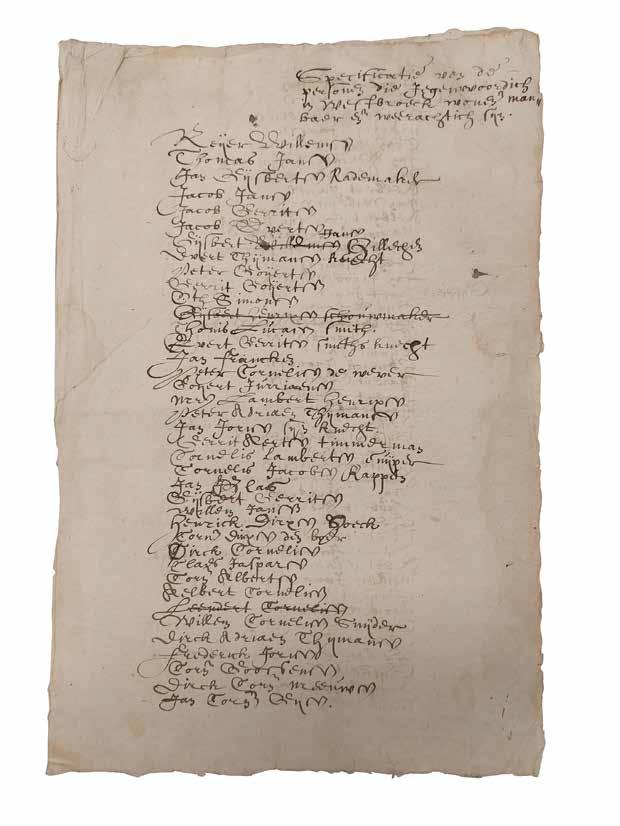 Specificatie van de
personen die Jegenwoordich
in Westbroeck wonen man„
baer en weerachtich sijn.
Reijer Willemsz
Thomas Jansz
Jan Gijsbertsz Rademaker
Jacob Jansz
Jacob Gerritsz
Jacob Evertsz
Gijsbert Jansz Gillesen
Evert Thijmansz knecht
Peter Goijertsz
Gerrit Goijertsz
Oth Simonsz
Gijsbert Henrixsz schouwmaker
Thonis Lucasz smith.
Evert Gerritsz smiths knecht
Jan Francken
Peter Cornelisz de wever
Goyert Jurriaensz
Lambert Henrixsz
Peter Adriaen Thijmansz
Jan Jorisz sijn knecht.
Gerrit Aertsz timmerman
Cornelis Lambertsz Cuijper
Cornelis Jacobsz Kappen
Jan Claes
Gijsbert Gerritsz
Willem Jansz
Henrick Dirxsz Hoeck
Corn Dirxsz den
Dirck Cornelisz
Claes Jaspersz
Corn Albertsz
Aelbert Cornelisz
Leendert Cornelisz
Willem Cornelisz Snijder
Dirck Adriaen Thijmansz
Frederick Jorisz
Corn Goossensz
Dirck Corn Meeuwsz
Jan Corn Gijsz.